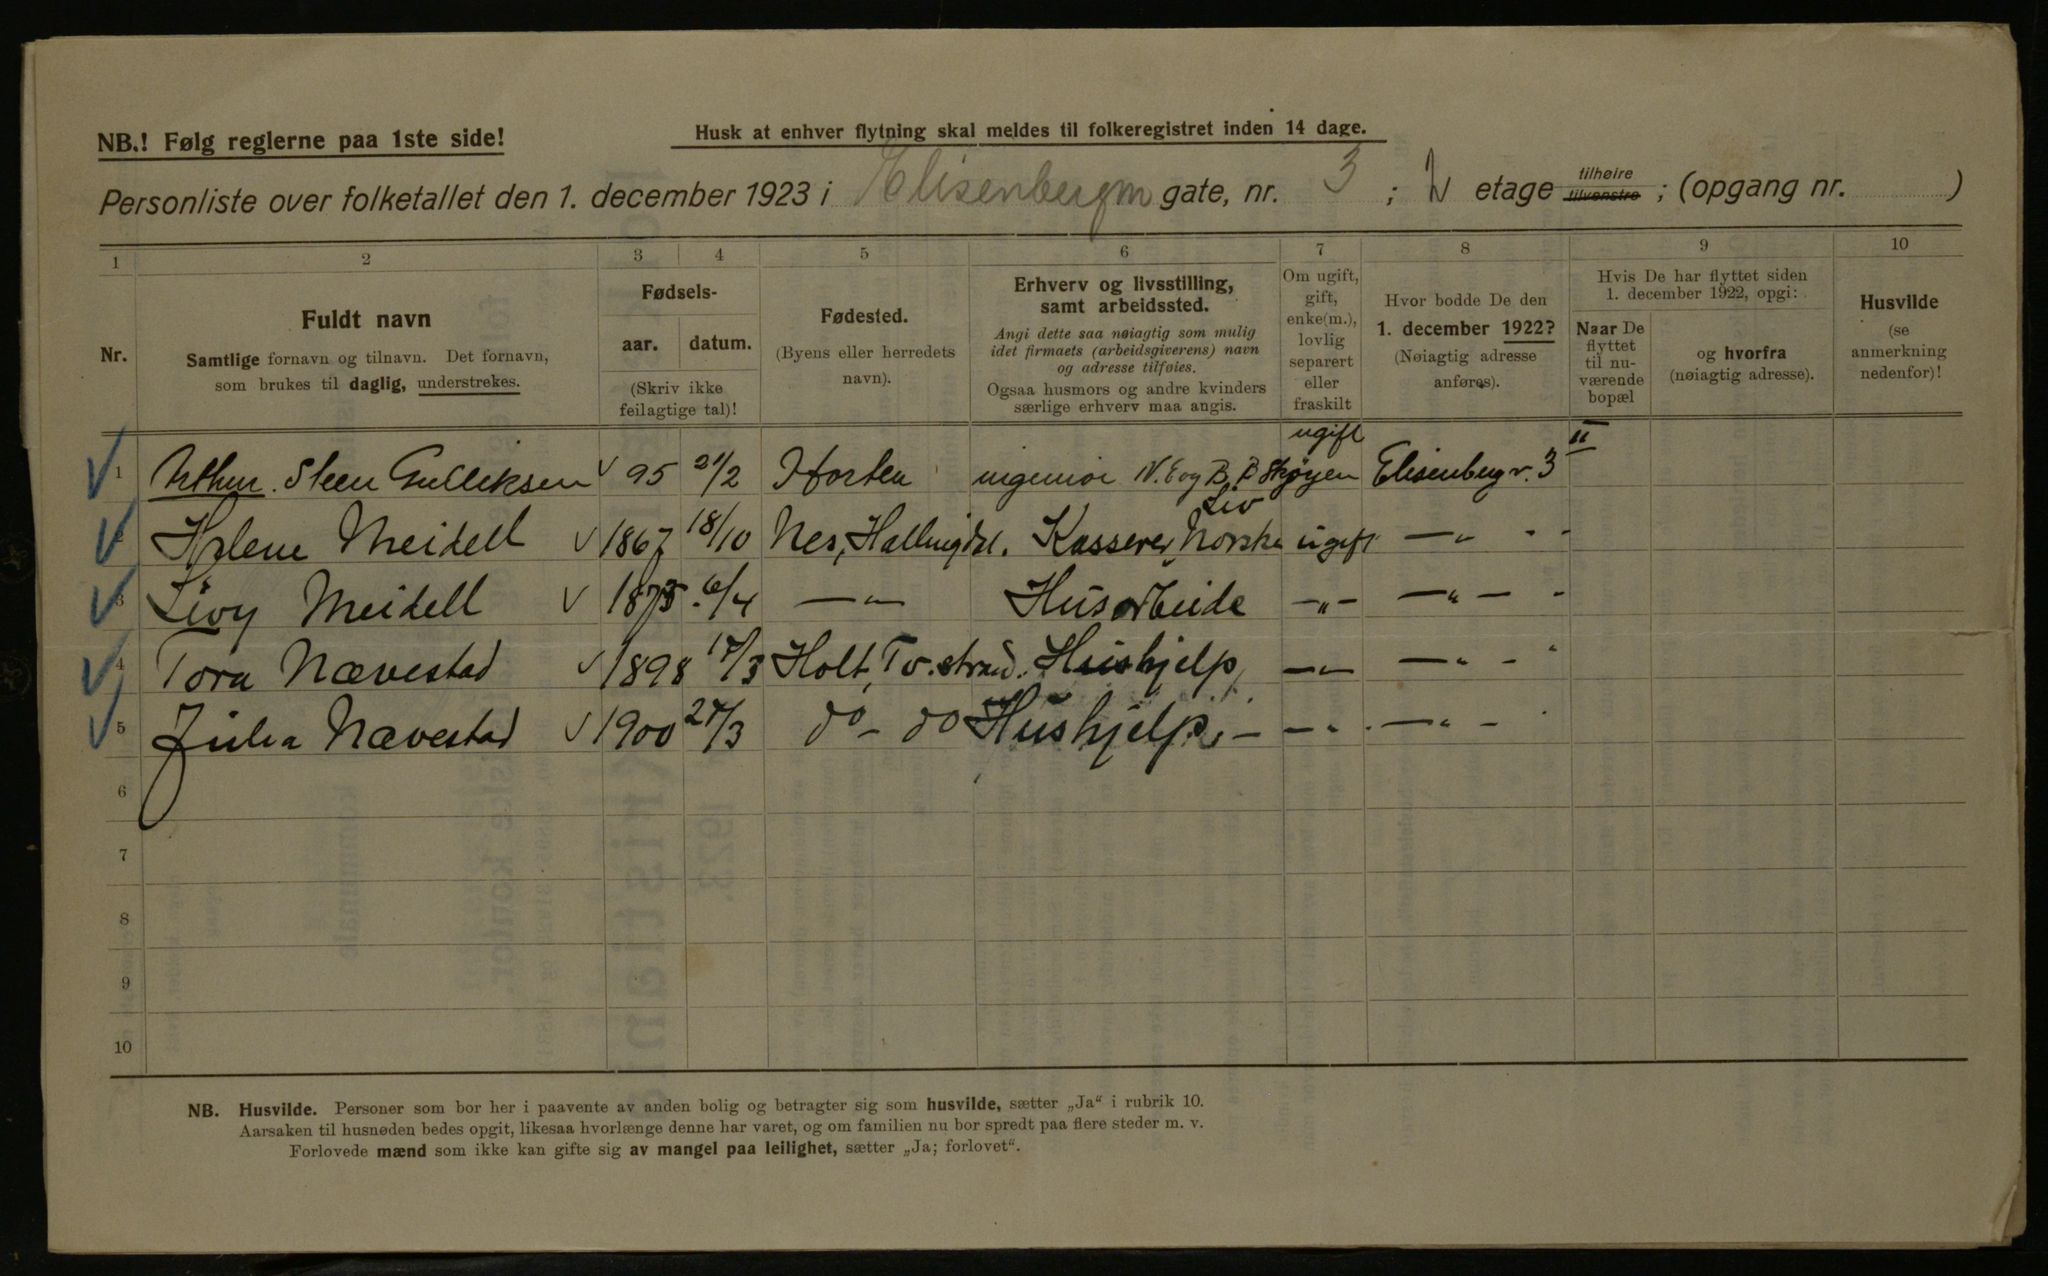 NB.! Følg reglerne paa 1ste side!
Husk at enhver flytning skal meldes til folkeregistret inden 14 dage.
Personliste over folketallet den 1. december 1923 i Elisenbergvn gate, nr. 3 ; 2 etage tilhøire tilvenstre ; (opgang nr. )
1 2 3 4 5 6 7 8 9 10
Nr.
Fuldt navn
Samtlige fornavn og tilnavn. Det fornavn,
som brukes til daglig, understrekes.
Fødsels-
aar. datum.
(Skriv ikke
feilagtige tal)!
Fødested.
(Byens eller herredets
navn).
Erhverv og livsstilling,
samt arbeidssted.
Angi dette saa nøiagtig som mulig
idet firmaets (arbeidsgiverens) navn
og adresse tilføies.
Ogsaa husmors og andre kvinders
særlige erhverv maa angis.
Om ugift,
gift,
enke(m.),
lovlig
separert
eller
fraskilt
Hvor bodde De den
1. december 1922?
(Nøiagtig adresse
anføres).
Hvis De har flyttet siden
1. december 1922, opgi:
Naar De
flyttet
til nu-
værende
bopæl
og hvorfra
(nøiagtig adresse).
Husvilde
(se
anmerkning
nedenfor)!
1 Arthur Steen Gulliksen √ 95 21/2 Horten ingeniør N. E og B. B Skøyen ugift Elisenbergv. 3 II
2 Helene Meidell √ 1867 18/10 Nes, Hallingdal. Kasserer, Norske Liv ugift —„ - -
3 Livy Meidell √ 1875 6/4 —„— Husarbeide -„- —„— -
4 Tora Nævestad √ 1898 17/3 Holt, Tv.strand. Hushjelp, —„— —„ - -
5 Julia Nævestad √ 1900 27/3 do - do Hushjelp. — -„- —„ - -
6
7
8
9
10
NB. Husvilde. Personer som bor her i paavente av anden bolig og betragter sig som husvilde, sætter „Ja“ i rubrik 10.
Aarsaken til husnøden bedes opgit, likesaa hvorlænge denne har varet, og om familien nu bor spredt paa flere steder m. v.
Forlovede mænd som ikke kan gifte sig av mangel paa leilighet, sætter „Ja; forlovet“.